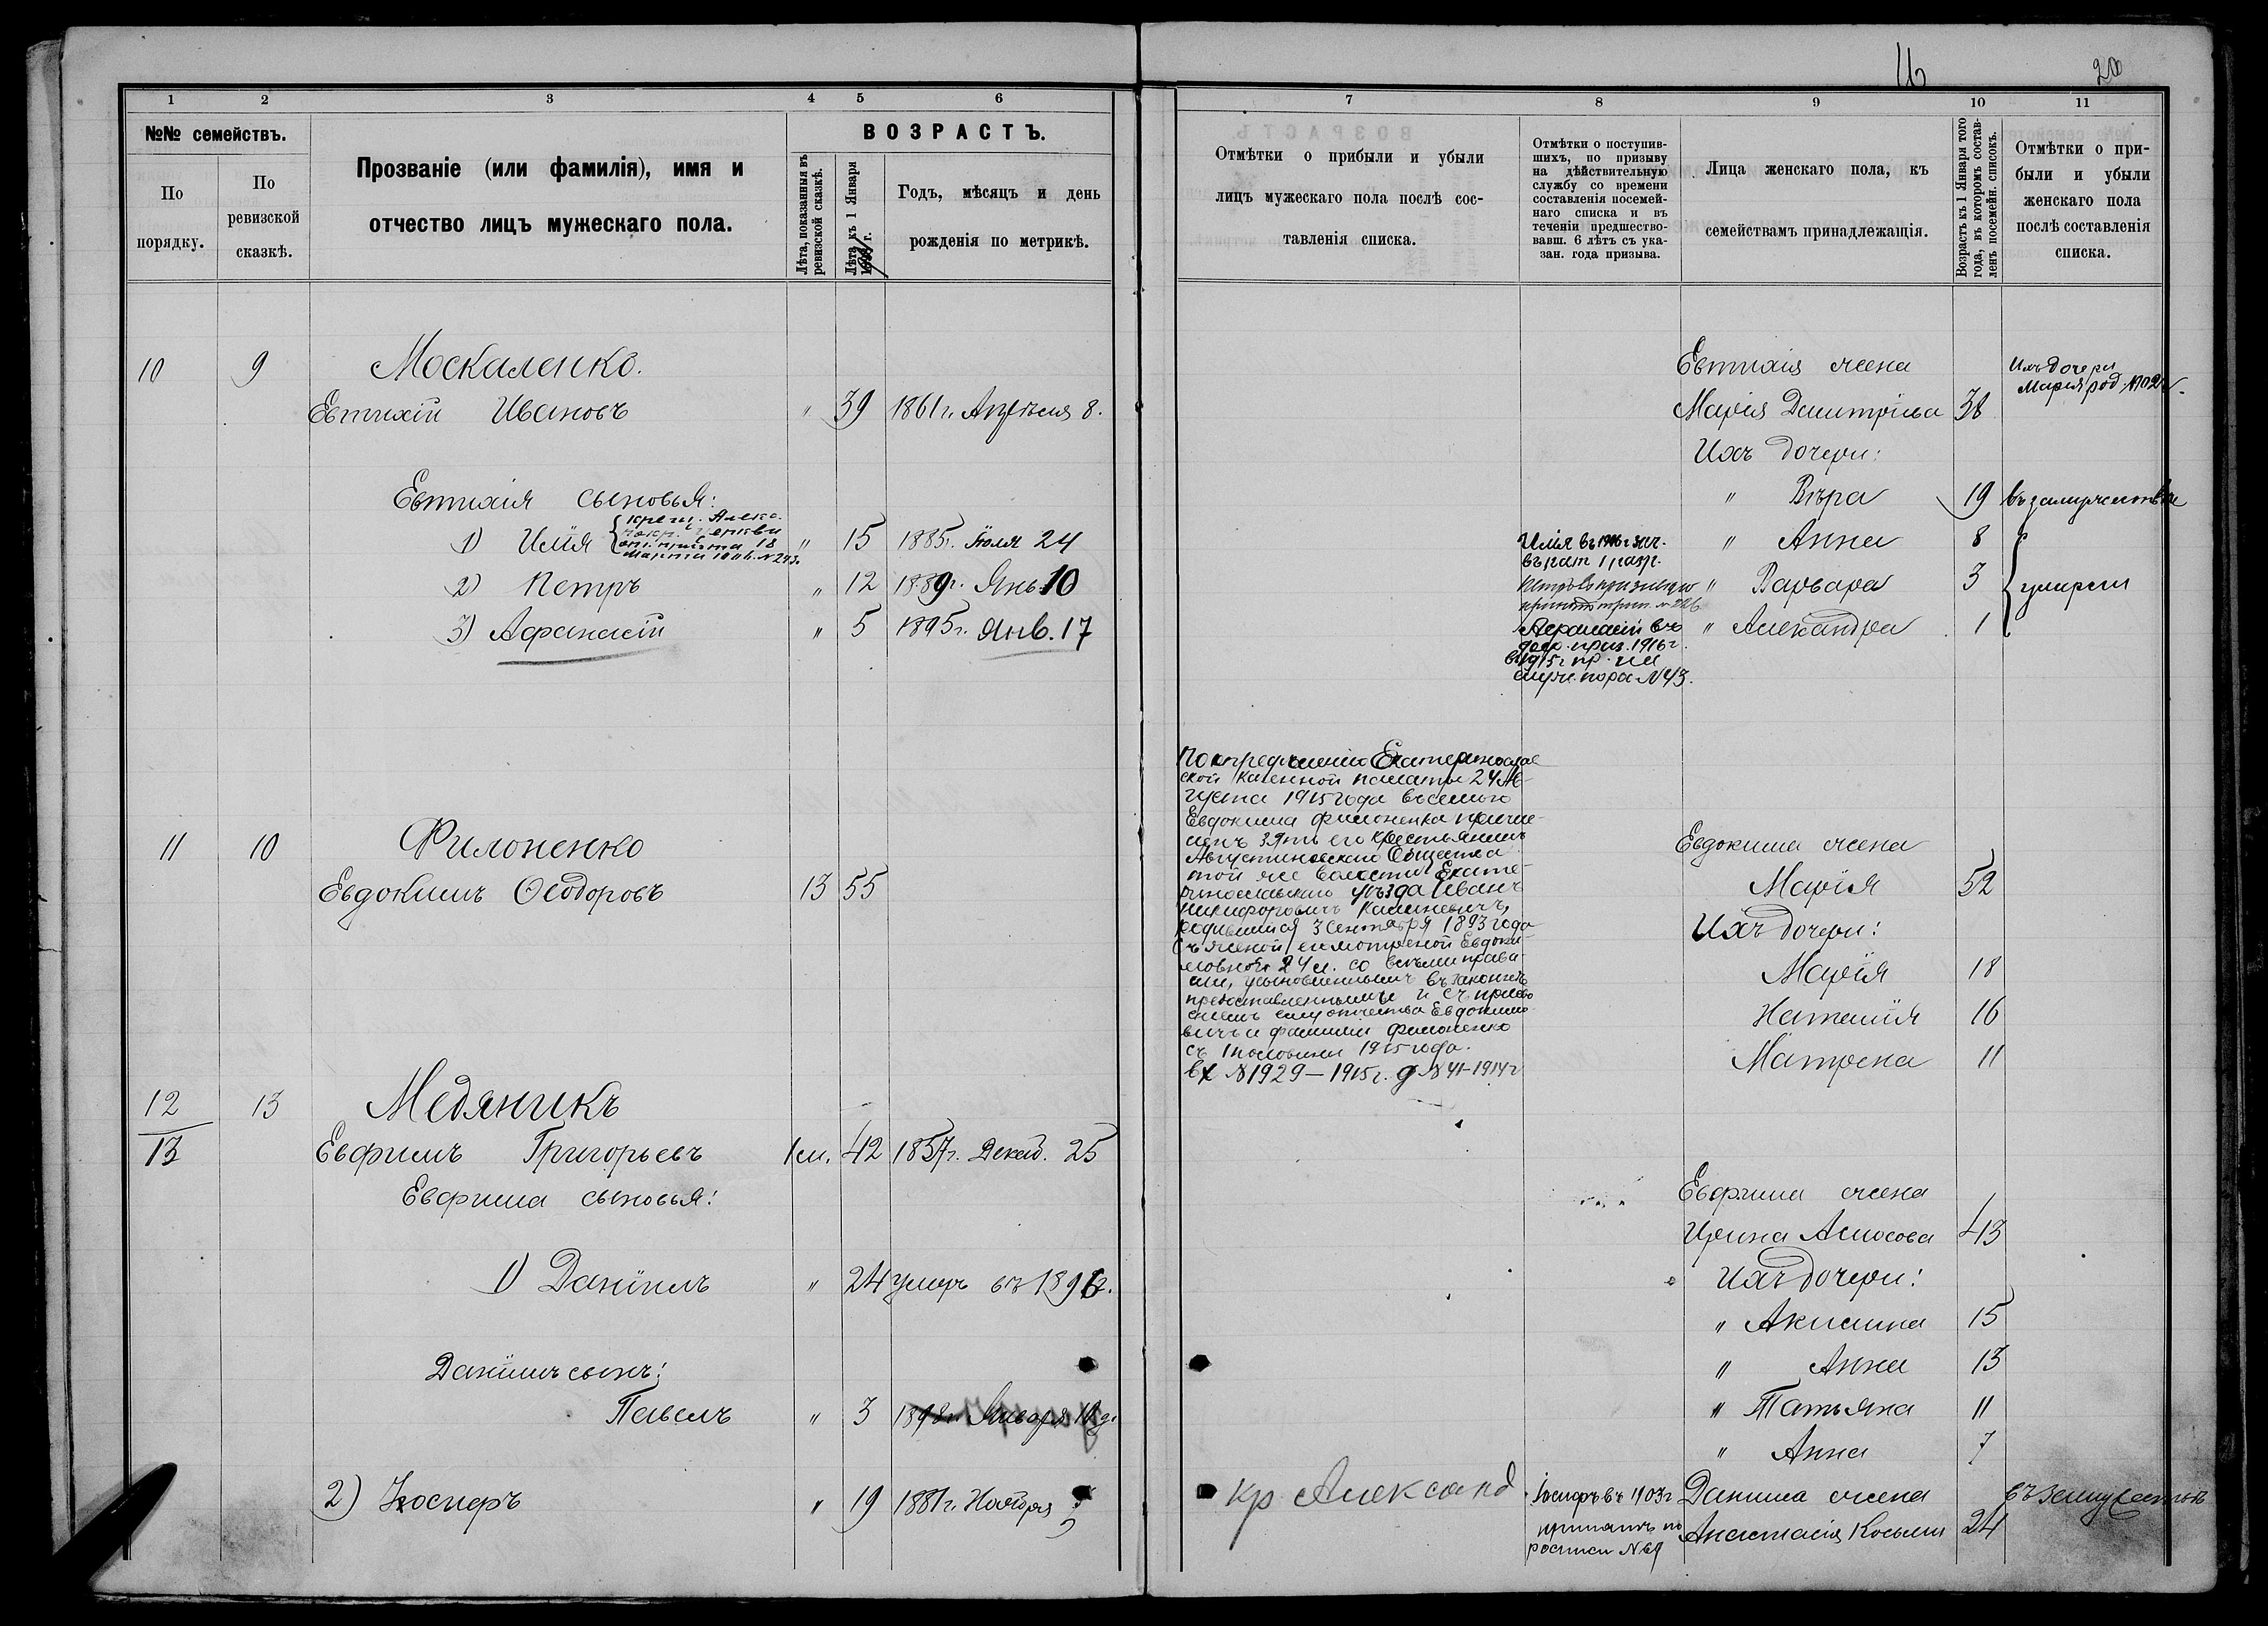 20
1 2 3 4 5 6
№№ семействъ.
По порядку.
По ревизской сказкѣ.
Прозваніе (или фамилія), имя и
отчество лицъ мужескаго пола.
ВОЗРАСТЪ.
Лѣта, показанныя въ
ревизской сказкѣ.
Лѣта къ 1 Января
г.
Годъ, мѣсяцъ и день
рожденія по метрикѣ.
10 9 Москаленко.
Евтихій Ивановъ " 39 1861 г. Апрѣля 8.
Евтихія сыновья:
1) Илія " 15 1885 г. Іюля 24
крещ. Алекс.
церкви
18
Марта № 243.
2) Петръ " 12 1889 г. Янв. 10
3) Афанасій " 5 1895 г. Янв. 17
11 10 Филоненко
Евдокимъ Ѳеодоровъ 13 55
12 13 Медяникъ
13 Евфимъ Григорьевъ 1 м. 42 1857 г. Декаб. 25
Евфима сыновья:
1) Даніилъ " 24 умеръ въ 1896 г.
Даніилъ сынъ:
Павелъ " 3 Января
2) Іосифъ " 19 1881 г. Ноября
7 8 9 10 11
Отмѣтки о прибыли и убыли
лицъ мужескаго пола послѣ сос-
тавленія списка.
Отмѣтки о поступив-
шихъ, по призыву
на дѣйствительную
службу со времени
составленія посемей-
наго списка и въ
теченіи предшество-
вавш. 6 лѣтъ съ ука-
зан. года призыва.
Лица женскаго пола, къ
семействамъ принадлежащія.
Возрастъ къ 1 Января того
года, въ которомъ состав-
ленъ посемейн. списокъ.
Отмѣтки о при-
были и убыли
женскаго пола
послѣ составленія
списка.
Евтихія жена
Марія Дмитріева 38
Ихъ дочери
Марія род. 1902 г.
Ихъ дочери:
" Вѣра 19 въ замужествѣ
" Анна 8
" Варвара 3 умерли
" Александра 1
Илія въ 1906 г. зач.
въ рат. 1 разр.
Петръ
№ 226
Афанасій въ
доср. приз. 1916 г.
въ 1915 г. пр. на
служ. № 43.
По опредѣленію Екатеринослав-
ской Казенной палаты 24 Ав-
густа 1915 года въ семью
Евдокима Филоненка причи-
сленъ зять его крестьянинъ
Августиновскаго Общества
той же волости Екате-
ринославскаго уѣзда Иванъ
Никифоровичъ Калиневичъ,
родившійся 3 Сентября 1893 года
съ женой его Матреной Евдоки-
мовной 24 л. со всѣми права-
ми, усыновленнымъ въ законѣ
предоставленными и съ присво-
еніемъ ему отчества Евдокимо-
вичъ и фамиліи Филоненко
съ 1 половины 1915 года.
вх № 1929 — 1915 г. д № 41-1914 г
Евдокима жена
Марія 52
Ихъ дочери:
Марія 18
Наталія 16
Матрена 11
Евфима жена
Ирина Амосова 43
Ихъ дочери:
" Акилина 15
" Анна 13
" Татьяна 11
" Анна 7
Кр Александ
Іосифъ въ 1903 г.
принятъ по
росписи № 69
Данила жена въ замужествѣ
Анастасія Косьмин 24